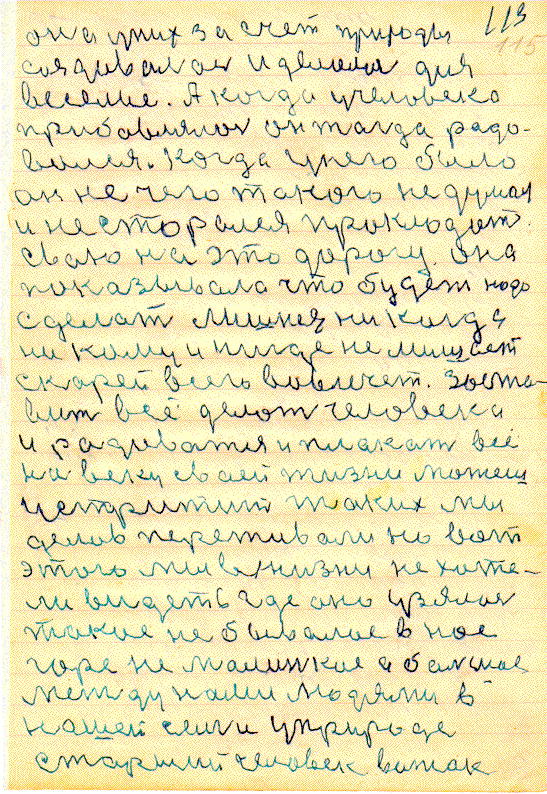 113
115
она у них за счет природы
создавалася и делалося для
веселие. А когда у человека
прибавлялося он тагда радо-
вался. Когда у него было
он не чего такого не думал
и не сторался проклодат.
сваю на это дорогу она
показывала что будет надо
сделат лишнея никогда
никому и нигде не мишает
скарей всего вовлечет. Заста-
вит всё делат человека
и радоватся и плакат всё
на веку сваей жизни можеш
устретит таких мы
делов переживали но вот
этого мы в жизни не хоте-
ли видеть где оно узялося
такое не бывалое в нас
горе не малинкое а балшое
между нами людями в
нашей семи у природе
старший человек витак